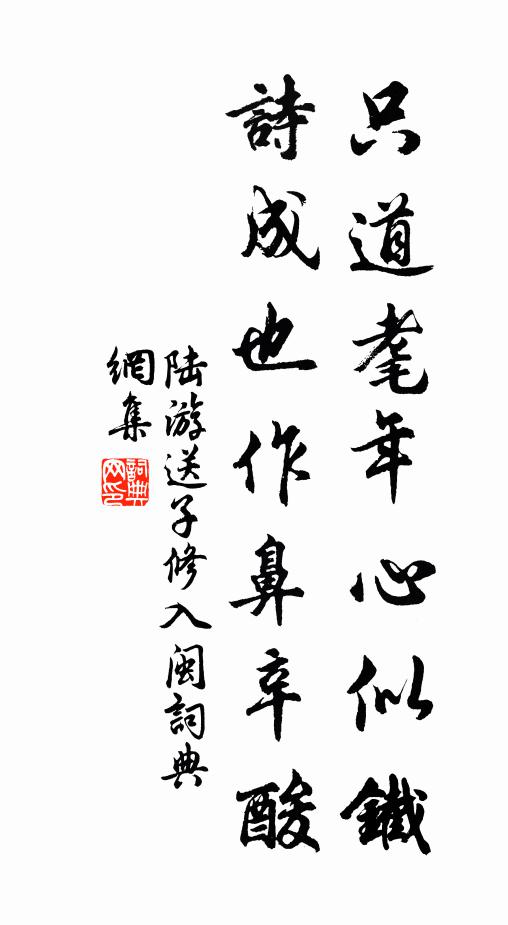 只道耄年心似鐵
詩成也作鼻辛酸
陆游送子修入閩詞典
網集
詞典
网印